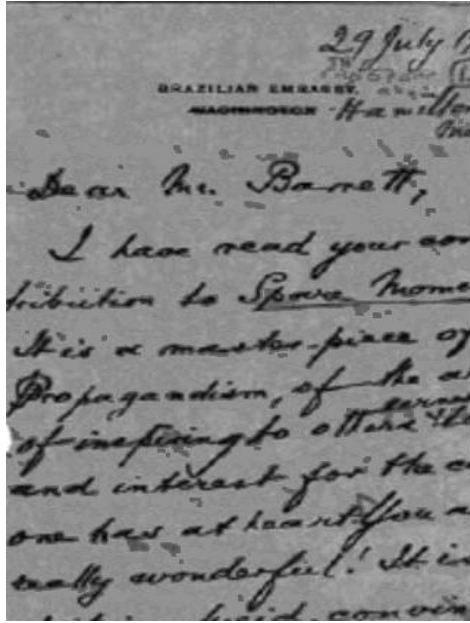 29 July
BRAZILIAN EMBASSY,
WASHINGTON
Dear Mr. Barrett,
I have read your con
tribution to Spare Mome
It is a master-piece of
Propagandism, of the a
of inspiring to others
and interest for the c
one has at heart. You a
really wonderful! It is
lucid, convin